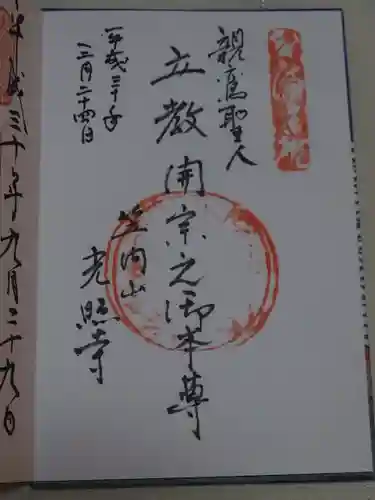 親鸞聖人
立教開宗之御本尊
笠間山
光照寺
平成三十年
三月二十四日
平成三十年九月二十九日